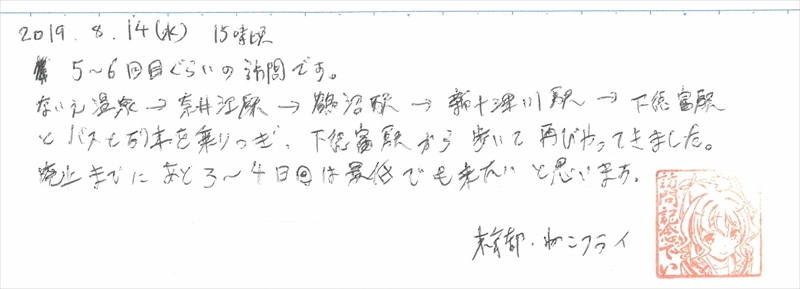 2019. 8. 14(水) 15時頃
5〜6回目ぐらいの訪問です。
ないえ温泉→奈井江駅→鶴沼駅→新十津川駅→下徳富駅
とバスと列車を乗りつぎ、下徳富駅から歩いて再びやってきました。
廃止までにあと3〜4日回は最低でも来たいと思います。
京都・ねこフライ
訪問記念でい